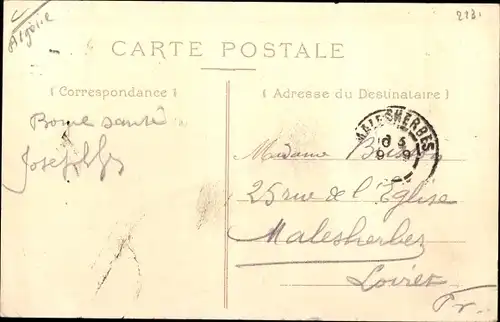 Algérie
213.
CARTE POSTALE
(Correspondance)
(Adresse du Destinataire)
Bonne santé
MALESHERBES
Madame
25 rue de l'Eglise
Malesherbes
Loiret
Fr.